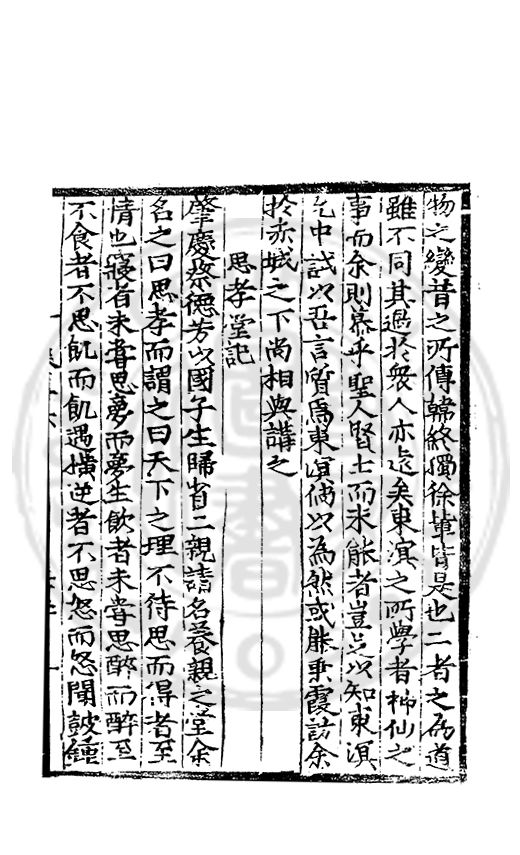 物之變昔之所傳韓終獨徐輩皆是也二者之爲道
雖不同其過於衆人亦遠矣東溟之所學者神仙之
事而余則慕乎聖人賢士而未能者豈足以知東溟
乞中試以吾言質爲東溟倘以为然或能乗霞訪余
扵赤城之下尚相與講之
思孝堂記
肇慶蔡德芳以國子生歸省二親請名養親之堂余
名之曰思孝而謂之曰天下之理不待思而得者至
情也寢者未嘗思夢而夢生飲者未嘗思醉而醉至
不食者不思飢而飢遇横逆者不思怒而怒聞鼓鍾